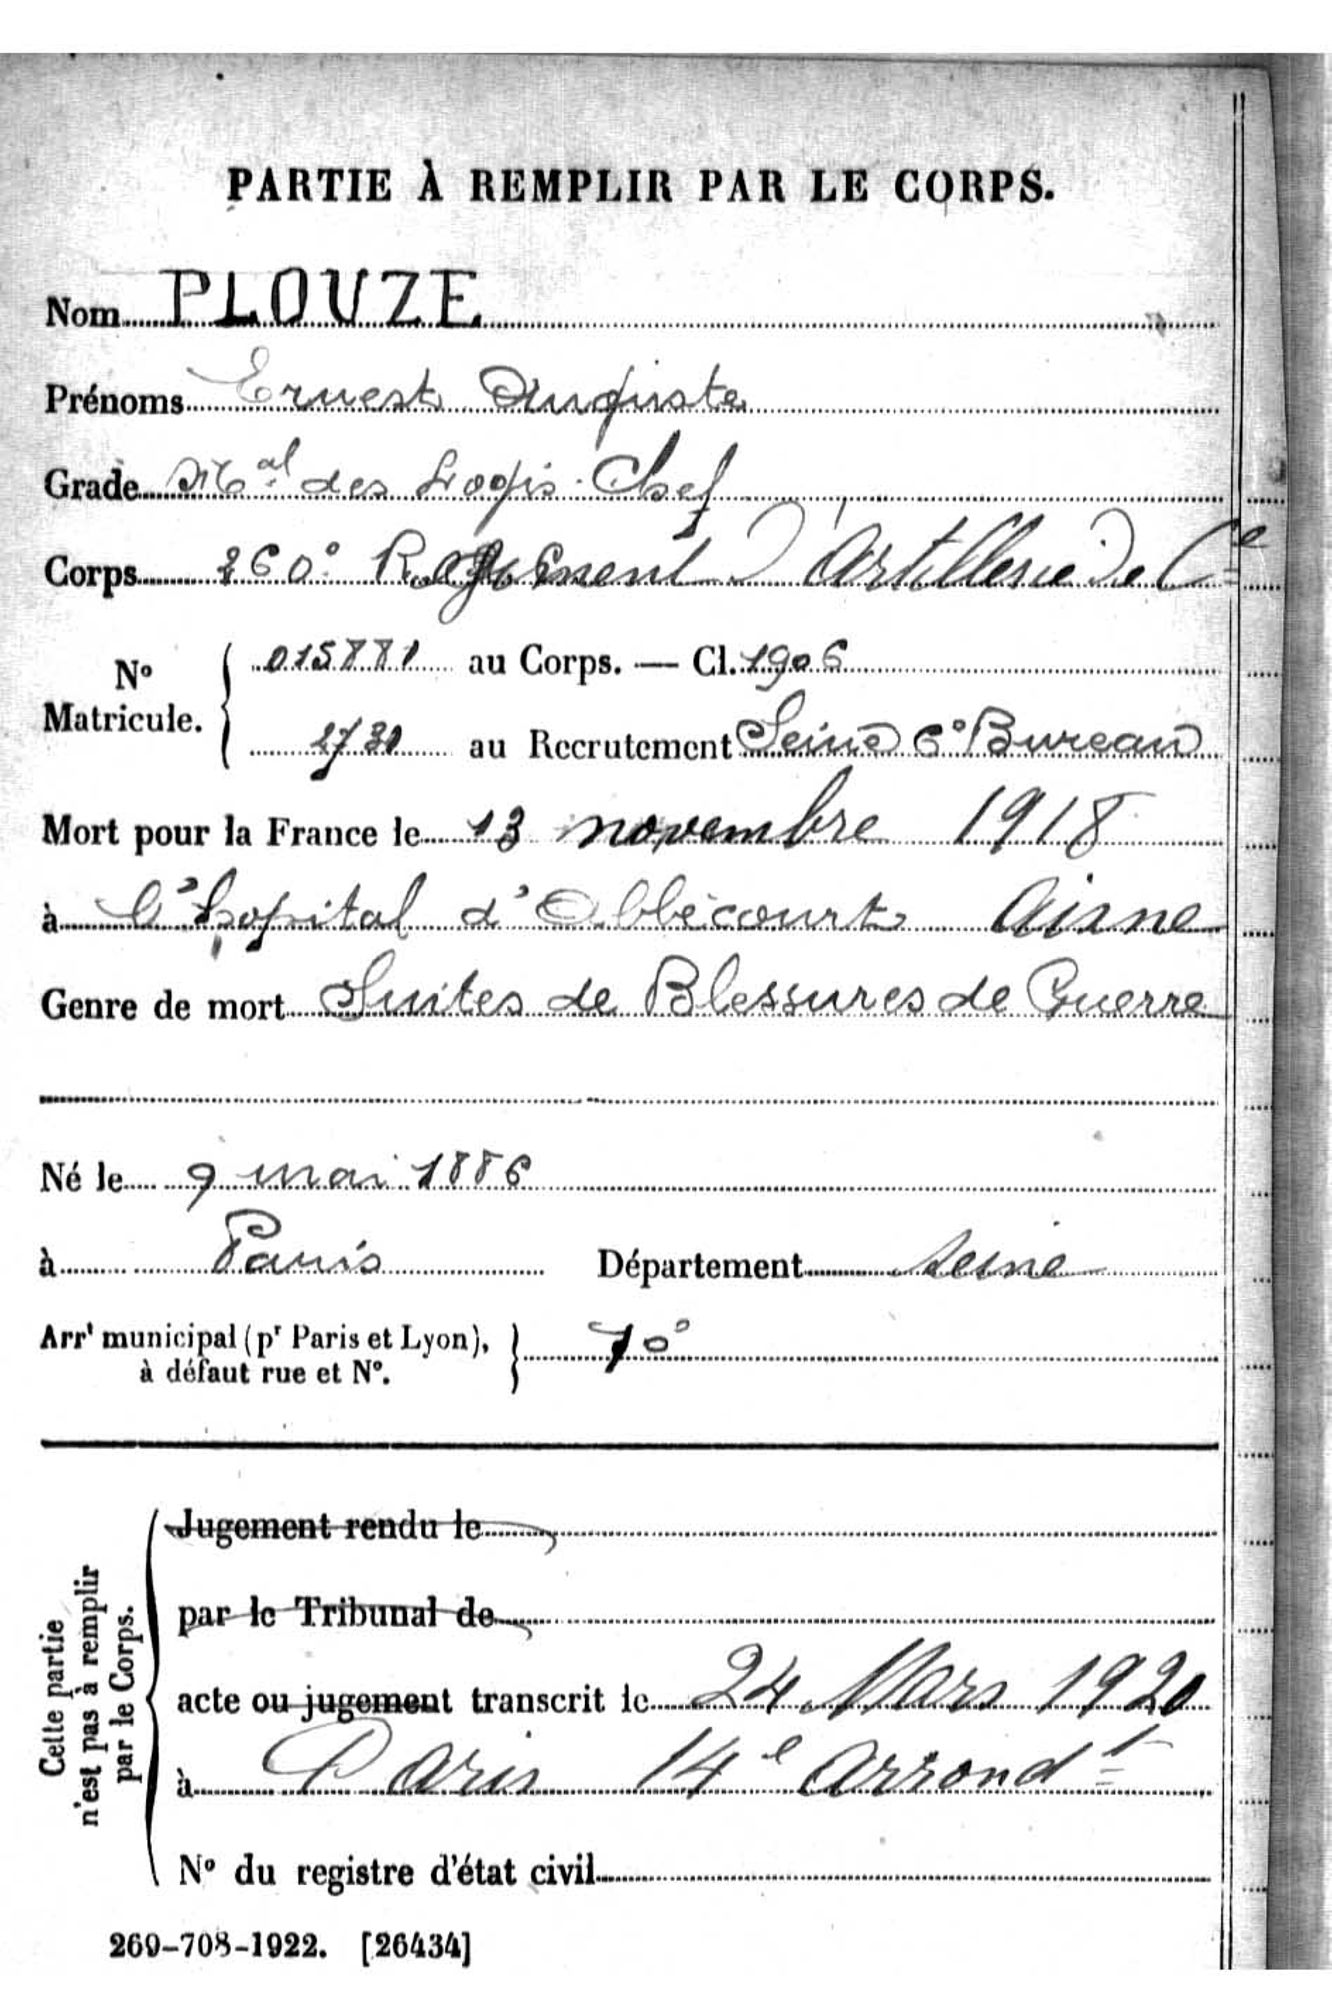 PARTIE À REMPLIR PAR LE CORPS.
Nom PLOUZE
Prénoms Ernest Auguste
Grade Mal des Logis-Chef
Corps 260° Régiment d'Artillerie de Cne
No Matricule. 015881 au Corps. — Cl. 1906
2730 au Recrutement Seine 6° Bureau
Mort pour la France le 13 novembre 1918
à l'hopital d'Abbécourt Aisne
Genre de mort Suites de Blessures de Guerre
Né le 9 mai 1886
à Paris Département Seine
Arrt municipal (pr Paris et Lyon), à défaut rue et No. 10°
Cette partie n'est pas à remplir par le Corps.
Jugement rendu le
par le Tribunal de
acte ou jugement transcrit le 24 Mars 1920
à Paris 14e arrondt
No du registre d'état civil
269-708-1922. [26434]